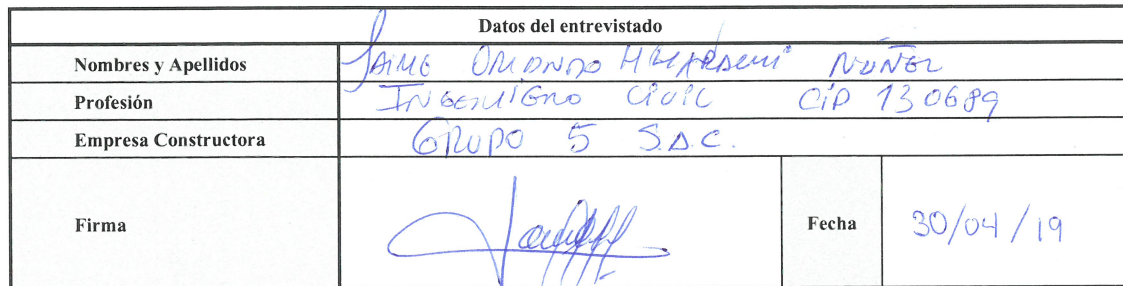 Datos del entrevistado
Nombres y Apellidos JAIME ORLANDO NUÑEZ
Profesión INGENIERO CIVIL CIP 130689
Empresa Constructora GRUPO 5 S.A.C.
Firma Fecha 30/04/19